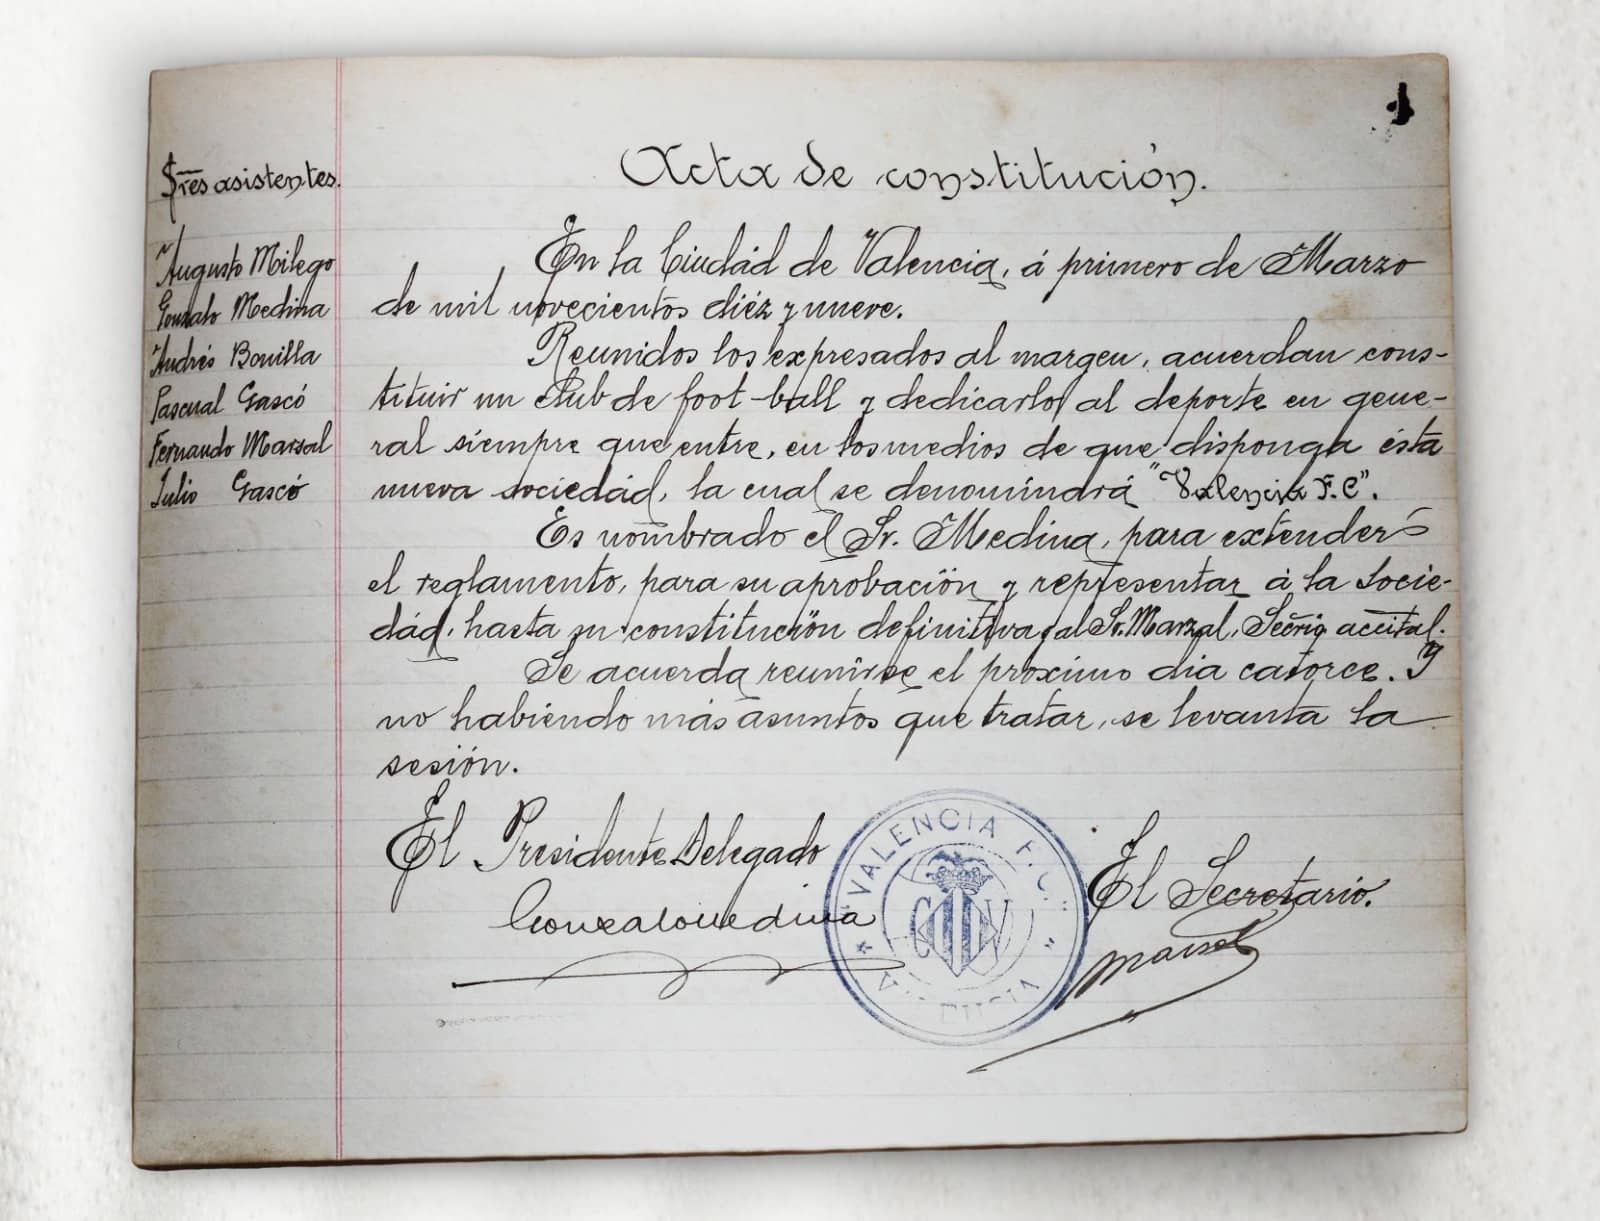 1
Acta de constitución.
Sres asistentes.
Augusto Milego
Gonzalo Medina
Andrés Bonilla
Pascual Gascó
Fernando Marsal
Julio Gascó
En la Ciudád de Valencia, á primero de Marzo
de mil novecientos diéz y nueve.
Reunidos los expresados al margen, acuerdan cons-
tituir un Club de foot-ball y dedicarlo al deporte en gene-
ral siempre que entre, en los medios de que disponga ésta
nueva sociedád, la cual se denominará "Valencia F.C".
Es nombrado el Sr. Medina, para extender
el reglamento, para su aprobación y representar á la Socie-
dád, hasta su constitución definitiva y al Sr. Marzal, accital.
Se acuerda reunirse el próximo dia catorce. Y
no habiendo más asuntos que tratar, se levanta la
sesión.
El Presidente Delegado
El Secretario.
Gonzalo Medina
Marsal
"VALENCIA F.C."
C V